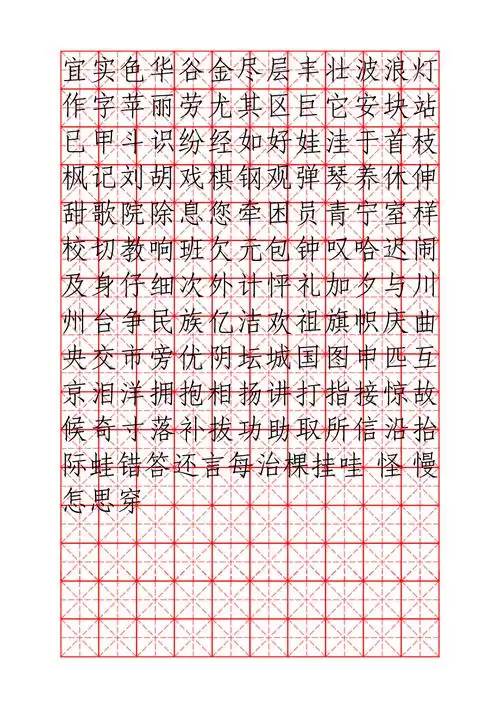 宜实色华谷金尽层丰壮波浪灯
作字苹丽劳尤其区巨它安块站
已甲斗识纷经如好娃洼于首枝
枫记刘胡戏棋钢观弹琴养休伸
甜歌院除息您牵困员青宁室样
校切教响班欠元包钟叹哈迟闹
及身仔细次外计怦礼加夕与川
州台争民族亿洁欢祖旗帜庆曲
央交市旁优阴坛城国图申匹互
京泪洋拥抱相扬讲打指接惊故
候奇寸落补拔功助取所信沿抬
际蛙错答还言每治棵挂哇 怪 慢
怎思穿